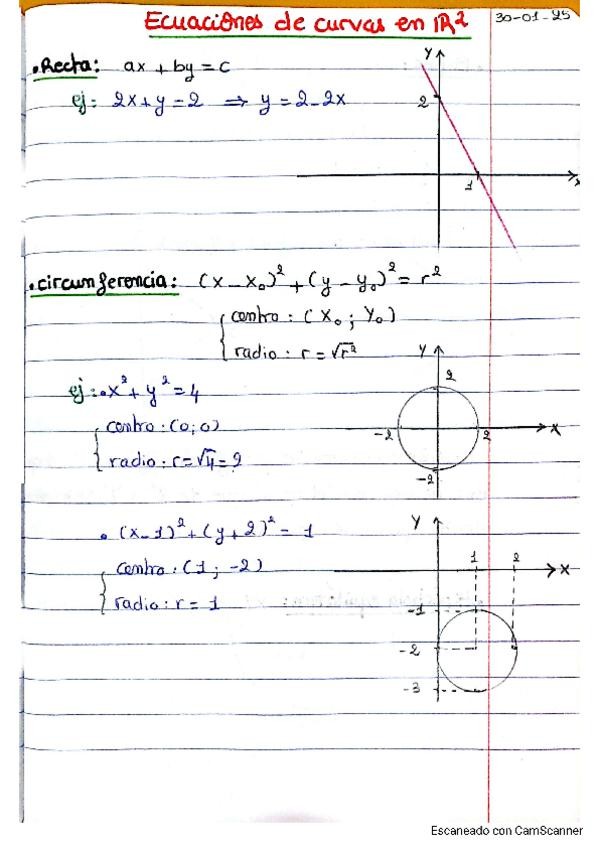 Ecuaciones de curvas en ℝ² 30-01-25
• Recta: ax + by = c
ej: 2x + y = 2 ⇒ y = 2 - 2x
Y
2
1
x
• circunferencia: (x - x₀)² + (y - y₀)² = r²
centro: (x₀ ; y₀)
radio: r = √r²
ej: • x² + y² = 4
centro: (0; 0)
radio: r = √4 = 2
Y
2
-2 2 X
-2
• (x - 1)² + (y + 2)² = 1
centro: (1 ; -2)
radio: r = 1
Y
1 2
X
-1
-2
-3
Escaneado con CamScanner